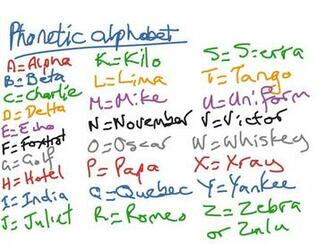 Phonetic alphabet
A=Alpha
B=Beta
C=Charlie
D=Delta
E=Echo
F=Foxtrot
G=Golf
H=Hotel
I=India
J=Juliet
K=Kilo
L=Lima
M=Mike
N=November
O=Oscar
P=Papa
Q=Quebec
R=Romeo
S=Sierra
T=Tango
U=Uniform
V=Victor
W=Whiskey
X=Xray
Y=Yankee
Z=Zebra
or Zulu